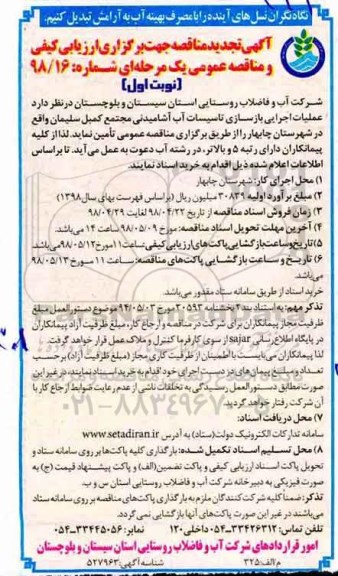 نگاه نگران نسل‌های آینده را با مصرف بهینه آب به آرامش تبدیل کنیم.
آگهی تجدید مناقصه جهت برگزاری ارزیابی کیفی
و مناقصه عمومی یک مرحله‌ای شماره: ۹۸/۱۶
(نوبت اول)
شرکت آب و فاضلاب روستایی استان سیستان و بلوچستان در نظر دارد
عملیات اجرایی بازسازی تاسیسات آب آشامیدنی مجتمع کمبل سلیمان واقع
در شهرستان چابهار را از طریق برگزاری مناقصه عمومی تأمین نماید. لذا از کلیه
پیمانکاران دارای رتبه ۵ و بالاتر، در رشته آب دعوت به عمل می‌آید. تا براساس
اطلاعات اعلام شده ذیل اقدام به خرید اسناد نمایند.
۱) محل اجرای کار: شهرستان چابهار
۲) مبلغ برآورد اولیه ۳۰۸۳۹ میلیون ریال (براساس فهرست بهای سال ۱۳۹۸)
۳) زمان فروش اسناد مناقصه از تاریخ ۹۸/۰۴/۲۲ لغایت ۹۸/۰۴/۲۹
۴) آخرین مهلت تحویل اسناد مناقصه: مورخ ۹۸/۰۵/۰۹ ساعت ۱۴ می‌باشد.
۵) تاریخ و ساعت بازگشایی پاکت‌های ارزیابی کیفی: ساعت ۱۱ مورخ ۹۸/۰۵/۱۲ می‌باشد.
۶) تاریخ و ساعت بازگشایی پاکت‌های مناقصه: ساعت ۱۱ مورخ ۹۸/۰۵/۱۳
می‌باشد.
خرید اسناد از طریق سامانه ستاد مقدور می‌باشد.
تذکر مهم: به استناد بند ۲ بخشنامه ۲۰۵۹۳ مورخ ۹۴/۰۵/۰۳ موضوع دستورالعمل مبلغ
ظرفیت مجاز پیمانکاران برای شرکت در مناقصه و ارجاع کار، مبلغ ظرفیت آزاد پیمانکاران
در پایگاه اطلاع‌رسانی sajar از سوی کارفرما کنترل و ملاک عمل قرار خواهد گرفت.
لذا پیمانکاران می‌بایست با اطمینان از ظرفیت کاری مجاز (مبلغ ظرفیت آزاد) برحسب
تعداد و مبلغ پیمان‌های در دست اجرای خود اقدام به خرید اسناد نمایند، در غیر این
صورت مطابق دستورالعمل رسیدگی به تخلفات ناشی از عدم رعایت ضوابط ارجاع کار با
آن شرکت رفتار خواهد گردید.
۷) محل دریافت اسناد:
سامانه تدارکات الکترونیک دولت (ستاد) به آدرس www.setadiran.ir
۸) محل تسلیم اسناد تکمیل شده: بارگذاری کلیه پاکت‌ها بر روی سامانه ستاد و
تحویل پاکت اسناد ارزیابی کیفی و پاکت تضمین (الف) و پاکت پیشنهاد قیمت (ج) به
صورت فیزیکی به دبیرخانه شرکت آب و فاضلاب روستایی استان س و ب.
تذکر: ضمناً کلیه شرکت‌کنندگان ملزم به بارگذاری پاکت‌های مناقصه بر روی سامانه ستاد
می‌باشند در غیر این صورت پاکت‌های آنها بازگشایی نمی‌گردد.
تلفن تماس: ۳۳۴۲۶۳۱۲-۰۵۴ داخلی ۱۲۰ نمابر: ۳۳۴۴۵۰۵۶-۰۵۴
امور قراردادهای شرکت آب و فاضلاب روستایی استان سیستان و بلوچستان
م‌الف: ۳۲۵ شناسه آگهی: ۵۲۷۹۶۳